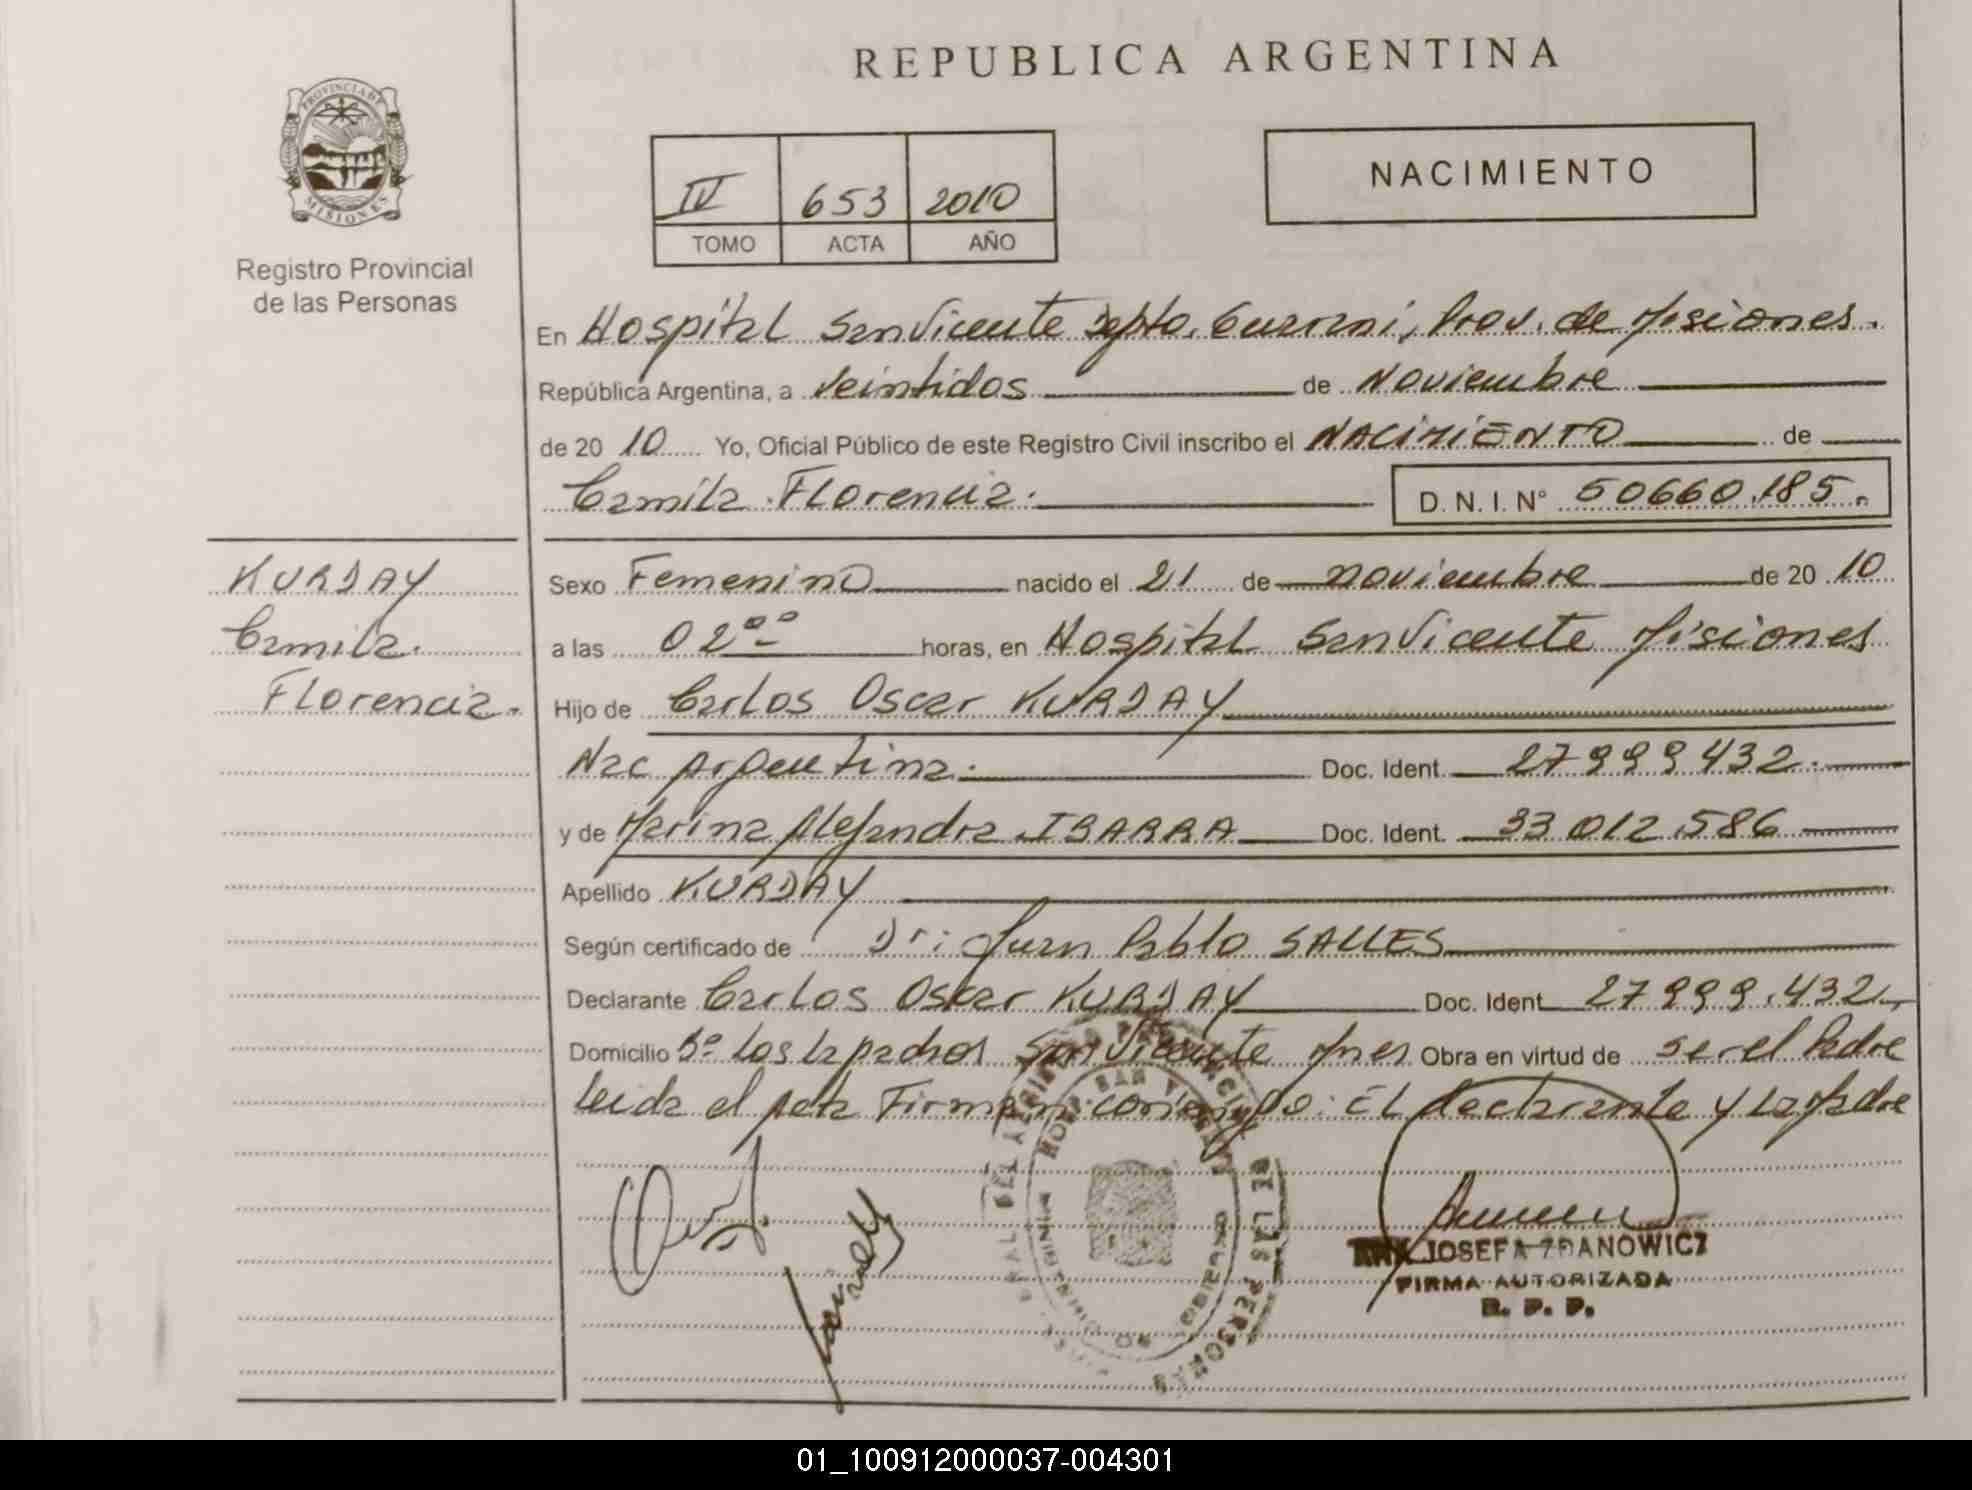 REPUBLICA ARGENTINA
PROVINCIA DE
MISIONES
Registro Provincial
de las Personas
IV 653 2010
TOMO ACTA AÑO
NACIMIENTO
En Hospital San Vicente Dpto. Guarani, Prov. de Misiones.
República Argentina, a Veintidos de Noviembre
de 20 10 Yo, Oficial Público de este Registro Civil inscribo el NACIMIENTO de
Camila Florencia. D. N. I. N° 50660.185.
KURDAY
Camila.
Florencia.
Sexo Femenino nacido el 21 de noviembre de 20 10
a las 02 °° horas, en Hospital San Vicente Misiones
Hijo de Carlos Oscar KURDAY
Nac Argentina. Doc. Ident. 27999432.
y de Marina Alejandra IBARRA Doc. Ident. 33012.586
Apellido KURDAY
Según certificado de Dr: Juan Pablo SALLES
Declarante Carlos Oscar KURDAY Doc. Ident. 27999.432
Domicilio Bº Los Lapachos San Vicente Mnes Obra en virtud de ser el Padre
leida el acta Firman conmigo: El declarante y La Madre
HOSP. SAN VICENTE
DE LAS PERSONAS
JOSEFA ZDANOWICZ
FIRMA AUTORIZADA
R. P. P.
01_100912000037-004301